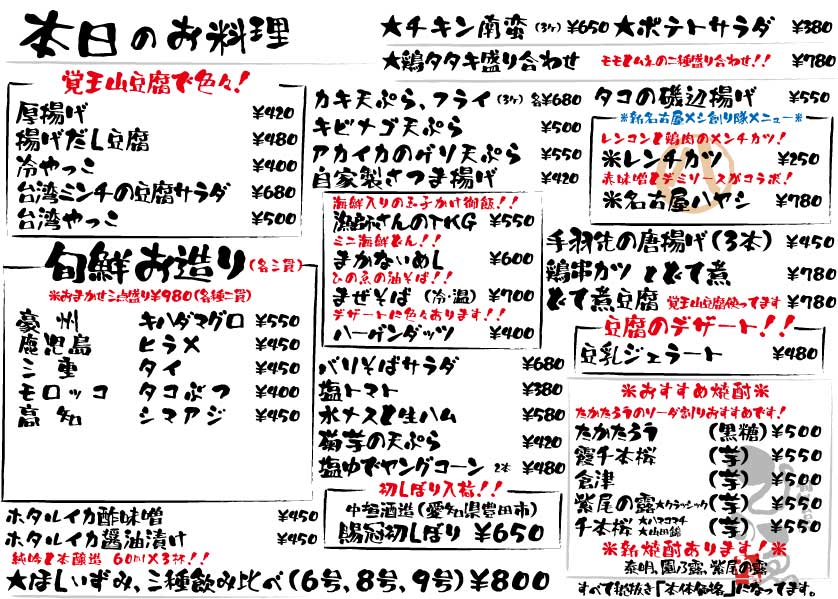 本日のお料理
★チキン南蛮(3ケ) ¥650 ★ポテトサラダ ¥380
★鶏タタキ盛り合わせ モモとムネの二種盛り合わせ!! ¥780
覚王山豆腐で色々!
厚揚げ ¥420
揚げだし豆腐 ¥480
冷やっこ ¥400
台湾ミンチの豆腐サラダ ¥680
台湾やっこ ¥500
旬鮮お造り(各三貫)
※おまかせ三点盛り¥980(各種二貫)
豪州 キハダマグロ ¥550
鹿児島 ヒラメ ¥450
三重 タイ ¥450
モロッコ タコぶつ ¥400
高知 シマアジ ¥450
ホタルイカ酢味噌 ¥450
ホタルイカ醤油漬け ¥450
純吟と本醸造 60ml×3杯!!
★ほしいずみ、三種飲み比べ(6号、8号、9号)¥800
カキ天ぷら、フライ(3ケ) 各¥680
キビナゴ天ぷら ¥500
アカイカのゲソ天ぷら ¥550
自家製さつま揚げ ¥420
海鮮入りの玉子かけ御飯!!
漁師さんのTKG ¥550
ミニ海鮮どん!!
まかないめし ¥600
ひの魚の油そば!!
まぜそば(冷・温) ¥700
デザートに色々あります!!
ハーゲンダッツ ¥400
パリそばサラダ ¥680
塩トマト ¥380
水ナスと生ハム ¥580
菊芋の天ぷら ¥420
塩ゆでヤングコーン 2本 ¥480
初しぼり入荷!!
中垣酒造(愛知県豊田市)
賜冠初しぼり ¥650
タコの磯辺揚げ ¥550
※新名古屋メシ創り隊メニュー※
レンコンと鶏肉のメンチカツ!
※レンチカツ ¥250
赤味噌とデミソースがコラボ!
※名古屋ハヤシ ¥780
手羽先の唐揚げ(3本) ¥450
鶏串カツ どて煮 ¥780
どて煮豆腐 覚王山豆腐使ってます ¥780
豆腐のデザート!!
豆乳ジェラート ¥480
※おすすめ焼酎※
たかたろうのソーダ割りおすすめです!
たかたろう (黒糖) ¥500
霞千本桜 (芋) ¥550
倉津 (芋) ¥500
紫尾の露★クラッシック(芋) ¥550
千本桜★ハマコマチ★山田錦(芋) ¥550
※新焼酎あります!※
泰明、園乃露、紫尾の露
すべて税抜き「本体価格」になってます。